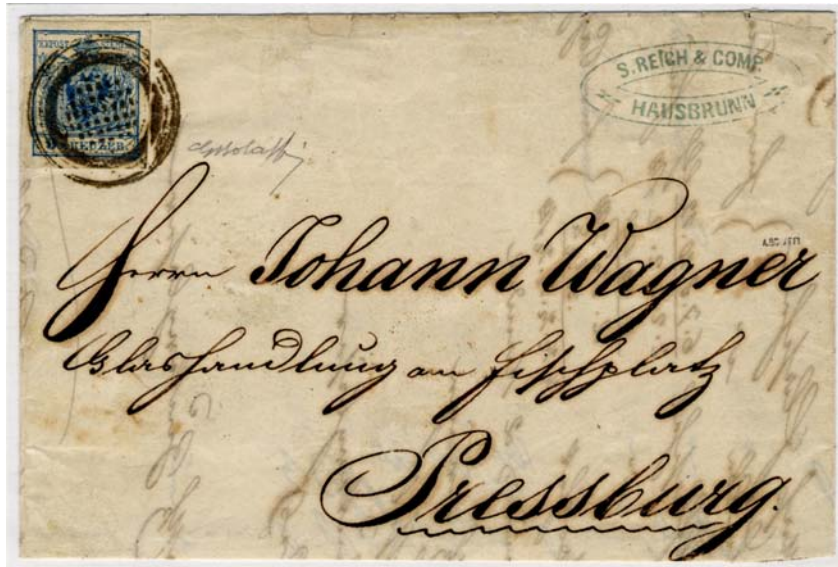 KREUZER
S. REICH & COMP.
HAUSBRUNN
Herrn Johann Wagner
Glashandlung am Fischplatz
Pressburg.